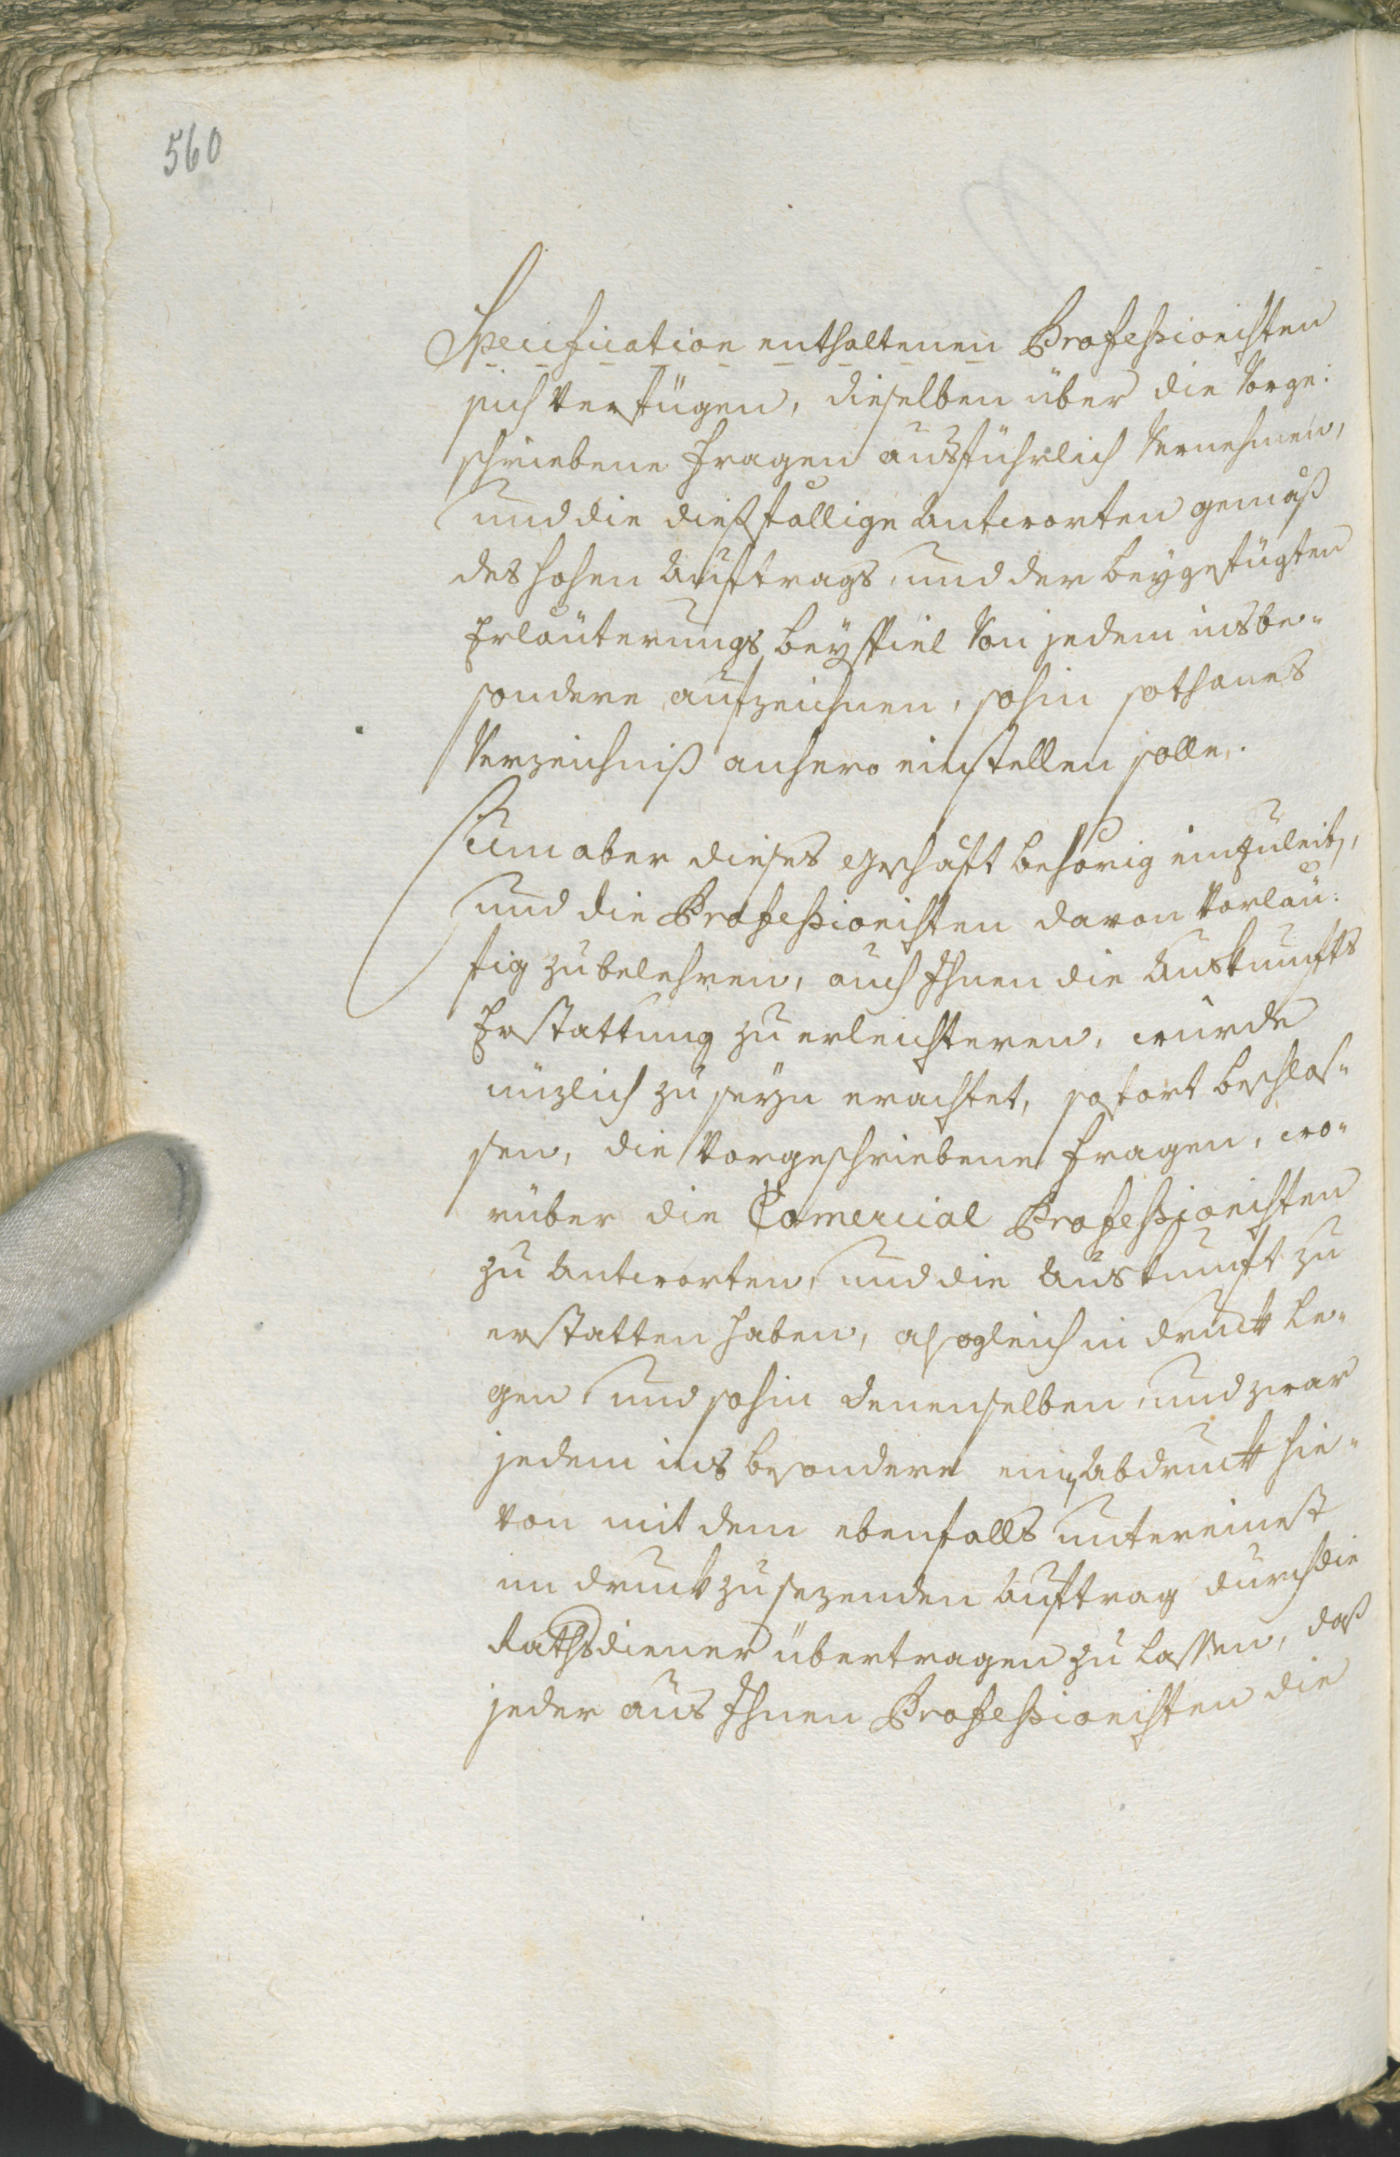 560
Specification enthaltenen Profeßionisten
sich verfügen, dieselben über die vorge:
schriebene Fragen ausführlich vernehmen,
und die dießfällige Antworten gemäß
des hohen Auftrags, und der beygefügten
Erläuterungs beyspiel von jedem insbe-
sondere aufzeichnen, sohin sothanes
Verzeichniß anhero einstellen solle.
Um aber dieses Geschäft behörig einzuleit,
und die Profeßionisten davon vorläu:
fig zubelehren, auch Ihnen die Auskunfts
Erstattung zu erleichteren, wurde
nüzlich zu seyn erachtet, sofort beschlos-
sen, die vorgeschriebene Fragen, wo-
rüber die Comercial Profeßionisten
zu Antworten, und die Auskunft zu
erstatten haben, alsogleich in druck le-
gen, und sohin denenselben, und zwar
jedem ins besondere ein Abdruck hie-
von mit dem ebenfalls untereinest
im druck zusezenden Auftrag durch die
Rathsdiener übertragen zu lassen, daß
jeder aus Ihnen Profeßionisten die